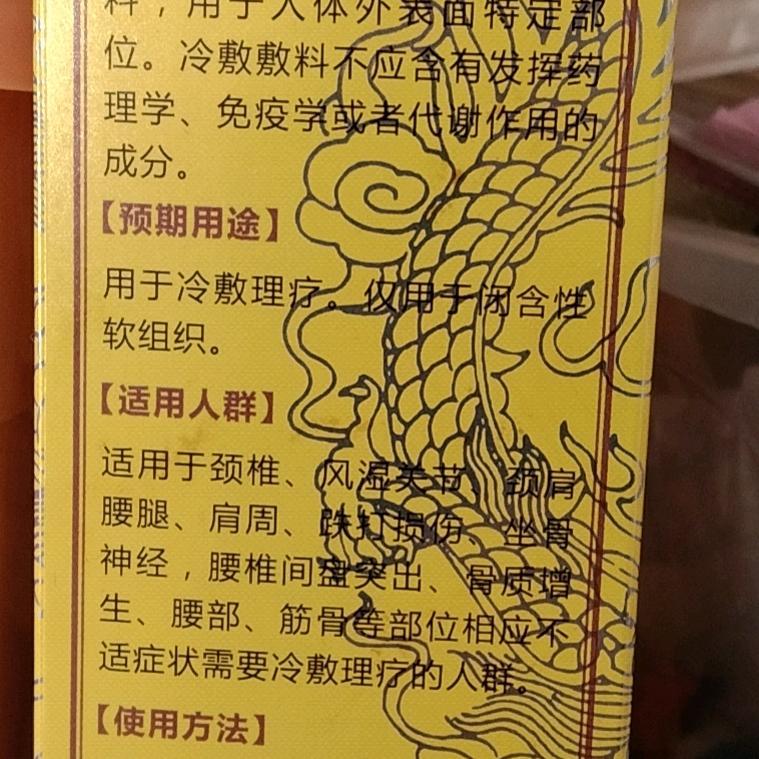 料，用于人体外表面特定部
位。冷敷敷料不应含有发挥药
理学、免疫学或者代谢作用的
成分。
【预期用途】
用于冷敷理疗。仅用于闭含性
软组织。
【适用人群】
适用于颈椎、风湿关节、颈肩
腰腿、肩周、跌打损伤、坐骨
神经，腰椎间盘突出、骨质增
生、腰部、筋骨等部位相应不
适症状需要冷敷理疗的人群。
【使用方法】